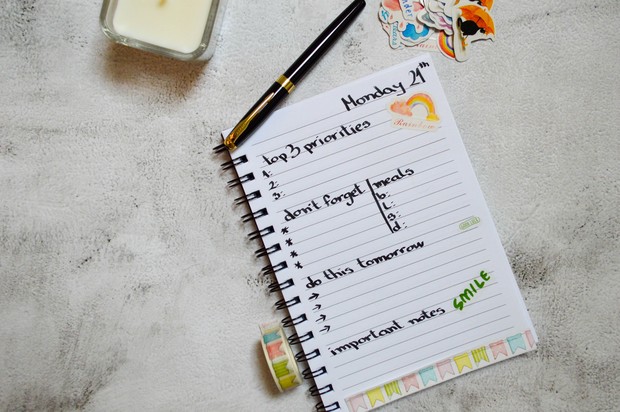 Monday 21th
Rainbow
top 3 priorities
1:
2:
3:
don't forget
*
*
*
*
meals
b:
L:
s:
d:
do this tomorrow
→
→
→
→
SMILE
important notes